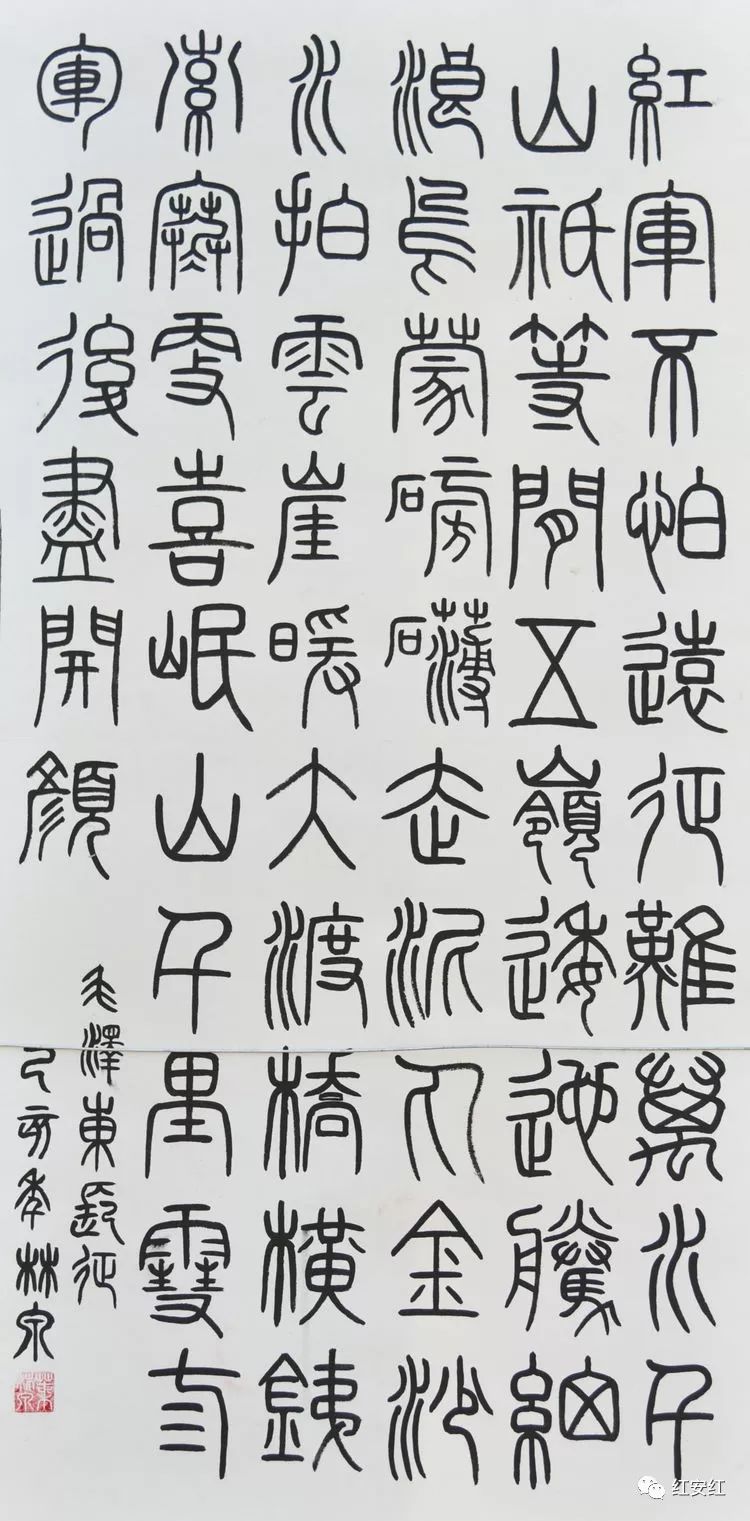 紅軍不怕遠征難萬水千
山祇等閒五嶺逶迤騰細
浪烏蒙磅礴走泥丸金沙
水拍雲崖暖大渡橋橫銕
索寒更喜岷山千里雪三
軍過後盡開顏
毛澤東長征
己亥年林泉
红安红